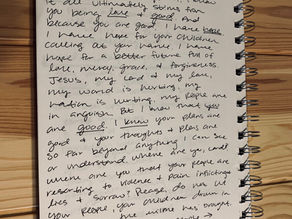 it all ultimately stems from
you being love & good. And
because you are good I have hope
I have hope for your children
calling at your name. I have
hope for a better future full of
love, mercy, grace, & forgiveness.
Jesus, my Lord & my love,
my world is hurting, my
nation is hurting, my people are
in anguish. But I know that you
are good. I know your plans are
good & your thoughts & plans are
so far beyond anything I can see
or understand. Where are you, Lord?
Where are you that your people are
resorting to violence & pain inflicting
lies & sorrow? Please, do not let
your people, your children drown in